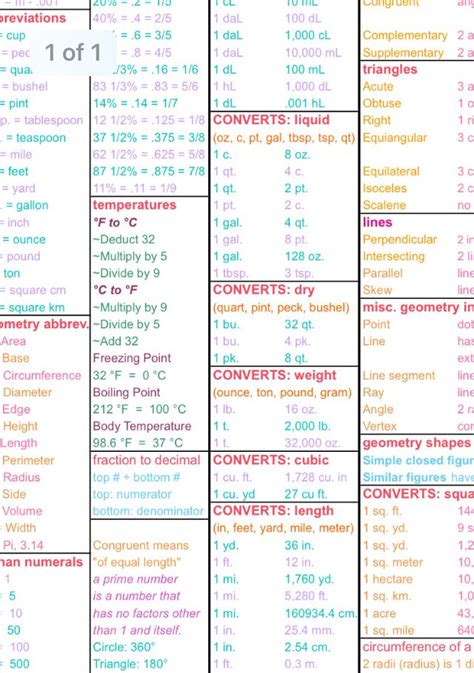 breviations
= cup
= pec
= qua
= bushel
= pint
p. = tablespoon
= teaspoon
= mile
= feet
= yard
. = gallon
= inch
= ounce
= pound
ton
= square cm
= square km
ometry abbrev.
Area
Base
Circumference
Diameter
Edge
Height
Length
Perimeter
Radius
Side
Volume
= Width
Pi, 3.14
nan numerals
1
= 5
= 10
50
= 100
1 of 1
20% = .2 = 1/5
40% = .4 = 2/5
= .6 = 3/5
= .8 = 4/5
1/3% = .16 = 1/6
83 1/3% = .83 = 5/6
14% = .14 = 1/7
12 1/2% = .125 = 1/8
37 1/2% = .375 = 3/8
62 1/2% = .625 = 5/8
87 1/2% = .875 = 7/8
11% = .11 = 1/9
temperatures
°F to °C
~Deduct 32
~Multiply by 5
~Divide by 9
°C to °F
~Multiply by 9
~Divide by 5
~Add 32
Freezing Point
32 °F = 0 °C
Boiling Point
212 °F = 100 °C
Body Temperature
98.6 °F = 37 °C
fraction to decimal
top # ÷ bottom #
top: numerator
bottom: denominator
Congruent means
"of equal length"
a prime number
is a number that
has no factors other
than 1 and itself.
Circle: 360°
Triangle: 180°
1 cL 10 mL
1 daL 100 dL
1 daL 1,000 cL
1 daL 10,000 mL
1 dL 100 mL
1 hL 1,000 dL
1 dL .001 hL
CONVERTS: liquid
(oz, c, pt, gal, tbsp, tsp, qt)
1 c. 8 oz.
1 qt. 4 c.
1 qt. 2 pt.
1 pt. 2 c.
1 gal. 4 qt.
1 gal. 8 pt.
1 gal. 128 oz.
1 tbsp. 3 tsp.
CONVERTS: dry
(quart, pint, peck, bushel)
1 bu. 32 qt.
1 bu. 4 pk.
1 pk. 8 qt.
CONVERTS: weight
(ounce, ton, pound, gram)
1 lb. 16 oz.
1 t. 2,000 lb.
1 t. 32,000 oz.
CONVERTS: cubic
1 cu. ft. 1,728 cu. in
1 cu. yd 27 cu ft.
CONVERTS: length
(in, feet, yard, mile, meter)
1 yd. 36 in.
1 ft. 12 in.
1 mi. 1,760 yd.
1 mi. 5,280 ft.
1 mi. 160934.4 cm.
1 in. 25.4 mm.
1 in. 2.54 cm.
1 ft. 0.3 m.
Congruent ang
Complementary 2 a
Supplementary 2 a
triangles
Acute 3 a
Obtuse 1 o
Right 1 ri
Equiangular 3 c
Equilateral 3 c
Isosceles 2 c
Scalene no
lines
Perpendicular 2 in
Intersecting 2 li
Parallel line
Skew line
misc. geometry in
Point dot
Line has
ext
Line segment line
Ray line
Angle 2 ra
Vertex cor
geometry shapes
Simple closed figur
Similar figures have
CONVERTS: squa
1 sq. ft. 144
1 sq. yd. 9 s
1 sq. yd. 1,2
1 sq. meter 10,
1 hectare 10,
1 sq. km. 1,0
1 acre 43,
1 sq. mile 640
circumference of a
2 radii (radius) is 1 di